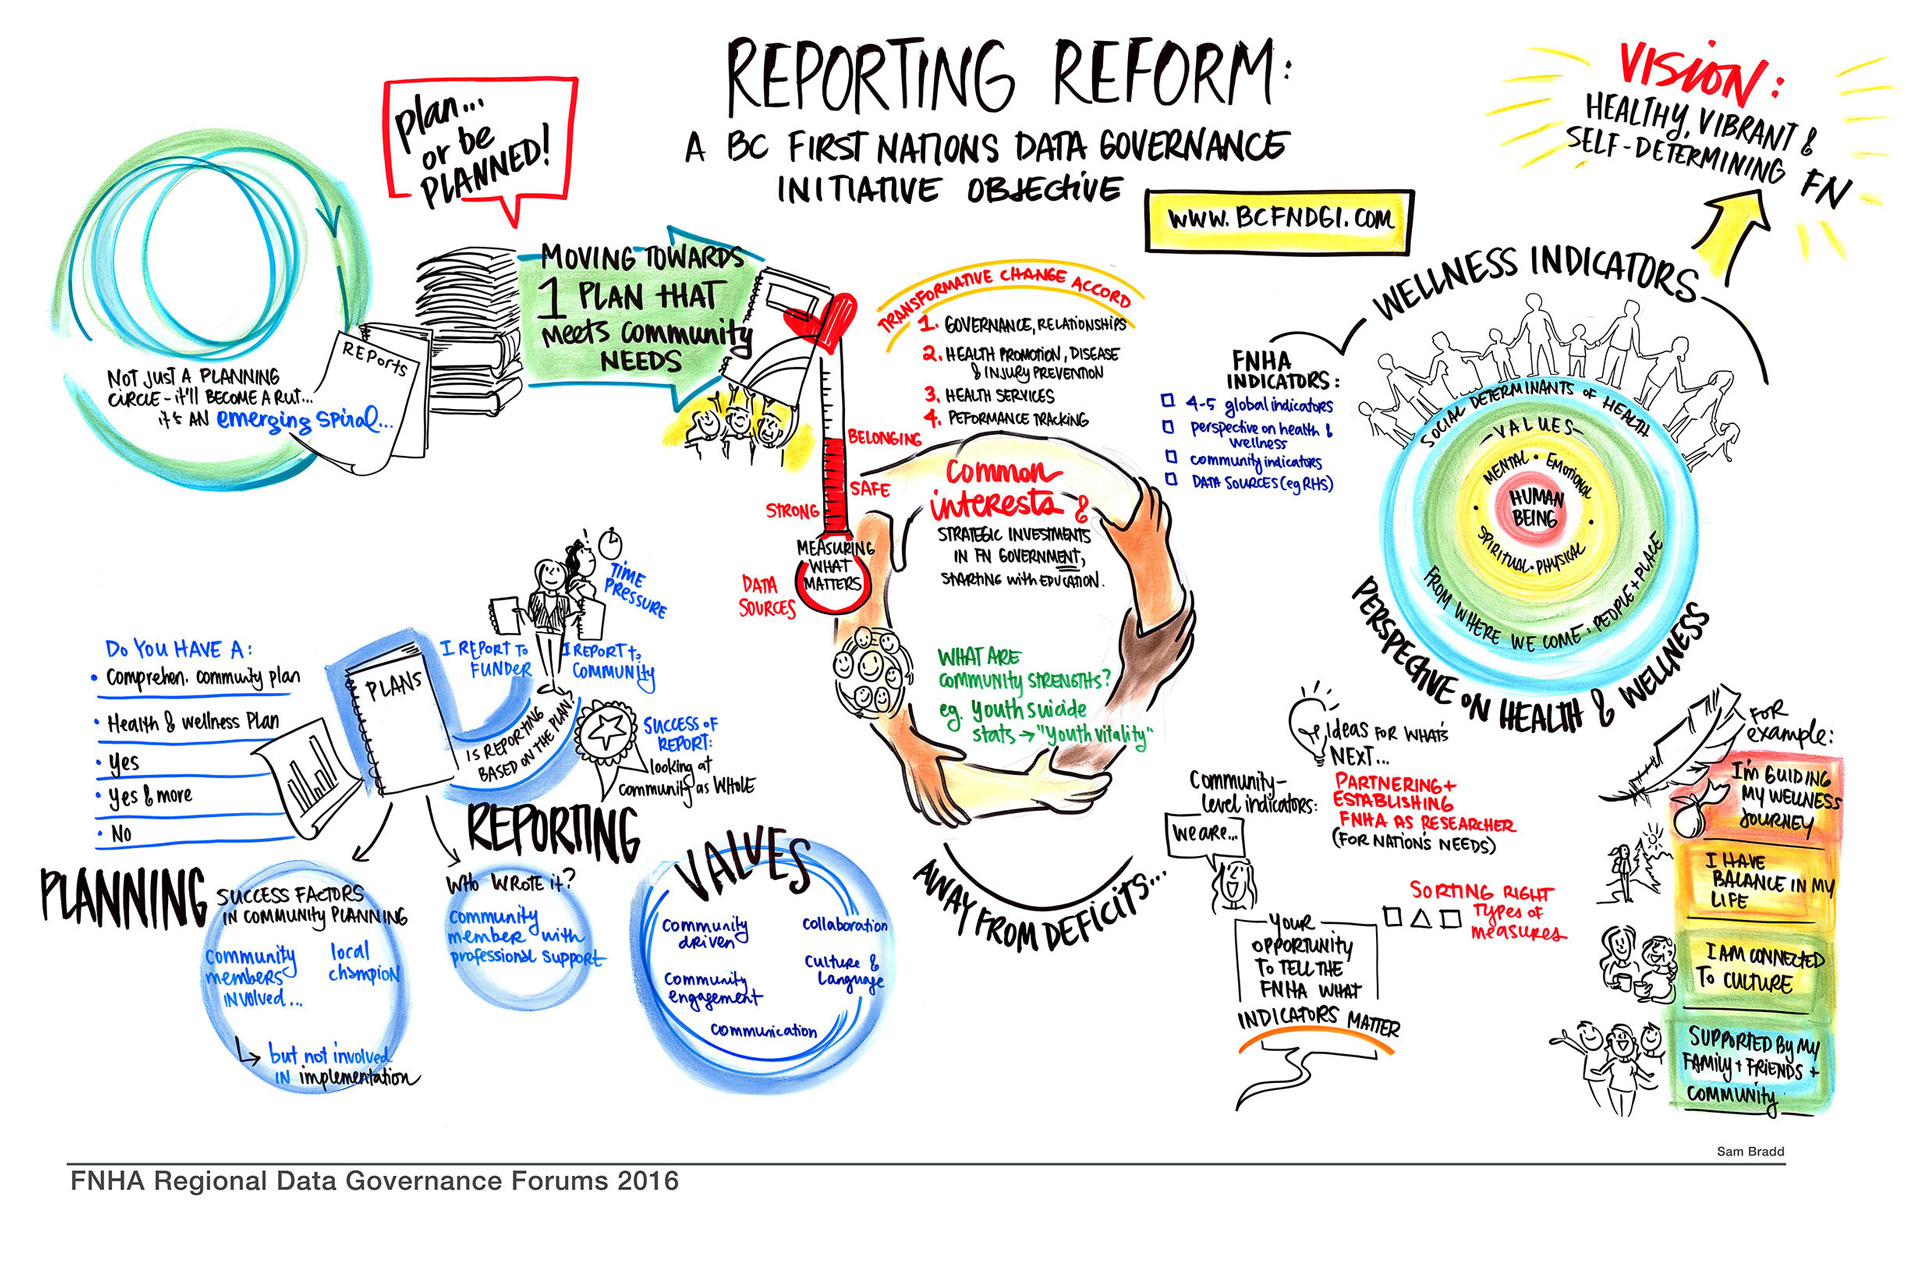 REPORTING REFORM:
A BC FIRST NATIONS DATA GOVERNANCE
INITIATIVE OBJECTIVE
WWW.BCFNDGI.COM
VISION:
HEALTHY, VIBRANT &
SELF-DETERMINING FN
plan...
or be
PLANNED!
NOT JUST A PLANNING
CIRCLE - it'll BECOME A RUT...
it's AN emerging spiral...
REPORTS
MOVING TOWARDS
1 PLAN THAT
meets community
NEEDS
TRANSFORMATIVE CHANGE ACCORD
1. GOVERNANCE, RELATIONSHIPS
2. HEALTH PROMOTION, DISEASE
& INJURY PREVENTION
3. HEALTH SERVICES
4. PEFORMANCE TRACKING
BELONGING
SAFE
STRONG
MEASURING
WHAT
MATTERS
DATA
SOURCES
Common
interests &
STRATEGIC INVESTMENTS
IN FN GOVERNMENT,
STARTING with EDUCATION.
WHAT ARE
COMMUNITY STRENGTHS?
eg. Youth suicide
stats → "Youth vitality"
AWAY FROM DEFICITS...
WELLNESS INDICATORS
FNHA
INDICATORS:
4-5 global indicators
perspective on health &
wellness
community indicators
DATA SOURCES (eg RHS)
SOCIAL DETERMINANTS OF HEALTH
- VALUES -
MENTAL • EMOTIONAL
HUMAN
BEING
SPIRITUAL • PHYSICAL
FROM WHERE WE COME: PEOPLE + PLACE
PERSPECTIVE ON HEALTH & WELLNESS
DO YOU HAVE A:
• Comprehen. community plan
• Health & wellness Plan
• Yes
• Yes & more
• No
PLANS
I REPORT TO
FUNDER
I REPORT to
COMMUNITY
TIME
PRESSURE
IS REPORTING
BASED ON THE PLAN?
SUCCESS OF
REPORT:
looking at
community as WHOLE
REPORTING
PLANNING
SUCCESS FACTORS
IN COMMUNITY PLANNING
Community
members
INVOLVED...
local
champion
but not involved
IN implementation
WHO WROTE it?
Community
member with
professional support
VALUES
Community
driven
collaboration
Community
engagement
culture &
Language
communication
Community-
level indicators:
We are...
YOUR
OPPORTUNITY
TO TELL THE
FNHA WHAT
INDICATORS MATTER
Ideas FOR WHAT'S
NEXT...
PARTNERING +
ESTABLISHING
FNHA AS RESEARCHER
(FOR NATION'S NEEDS)
SORTING RIGHT
TYPES of
measures
FOR
example:
I'm GUIDING
MY WELLNESS
JOURNEY
I HAVE
BALANCE IN MY
LIFE
I AM CONNECTED
To CULTURE
SUPPORTED BY MY
FAMILY + FRIENDS +
COMMUNITY
Sam Bradd
FNHA Regional Data Governance Forums 2016